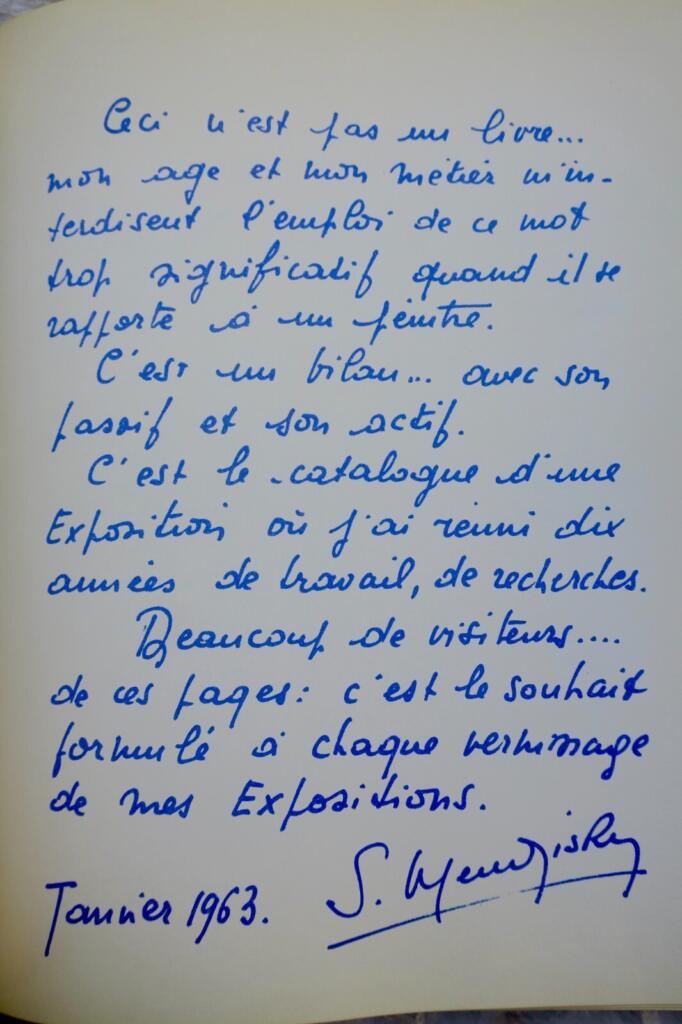 Ceci n'est pas un livre...
mon age et mon métier m'in-
terdisent l'emploi de ce mot
trop significatif quand il se
rapporte à un peintre.
C'est un bilan... avec son
passif et son actif.
C'est le catalogue d'une
Exposition où j'ai réuni dix
années de travail, de recherches.
Beaucoup de visiteurs....
de ces pages: c'est le souhait
formulé à chaque vernissage
de mes Expositions.
Janvier 1963. S. Mendjisky